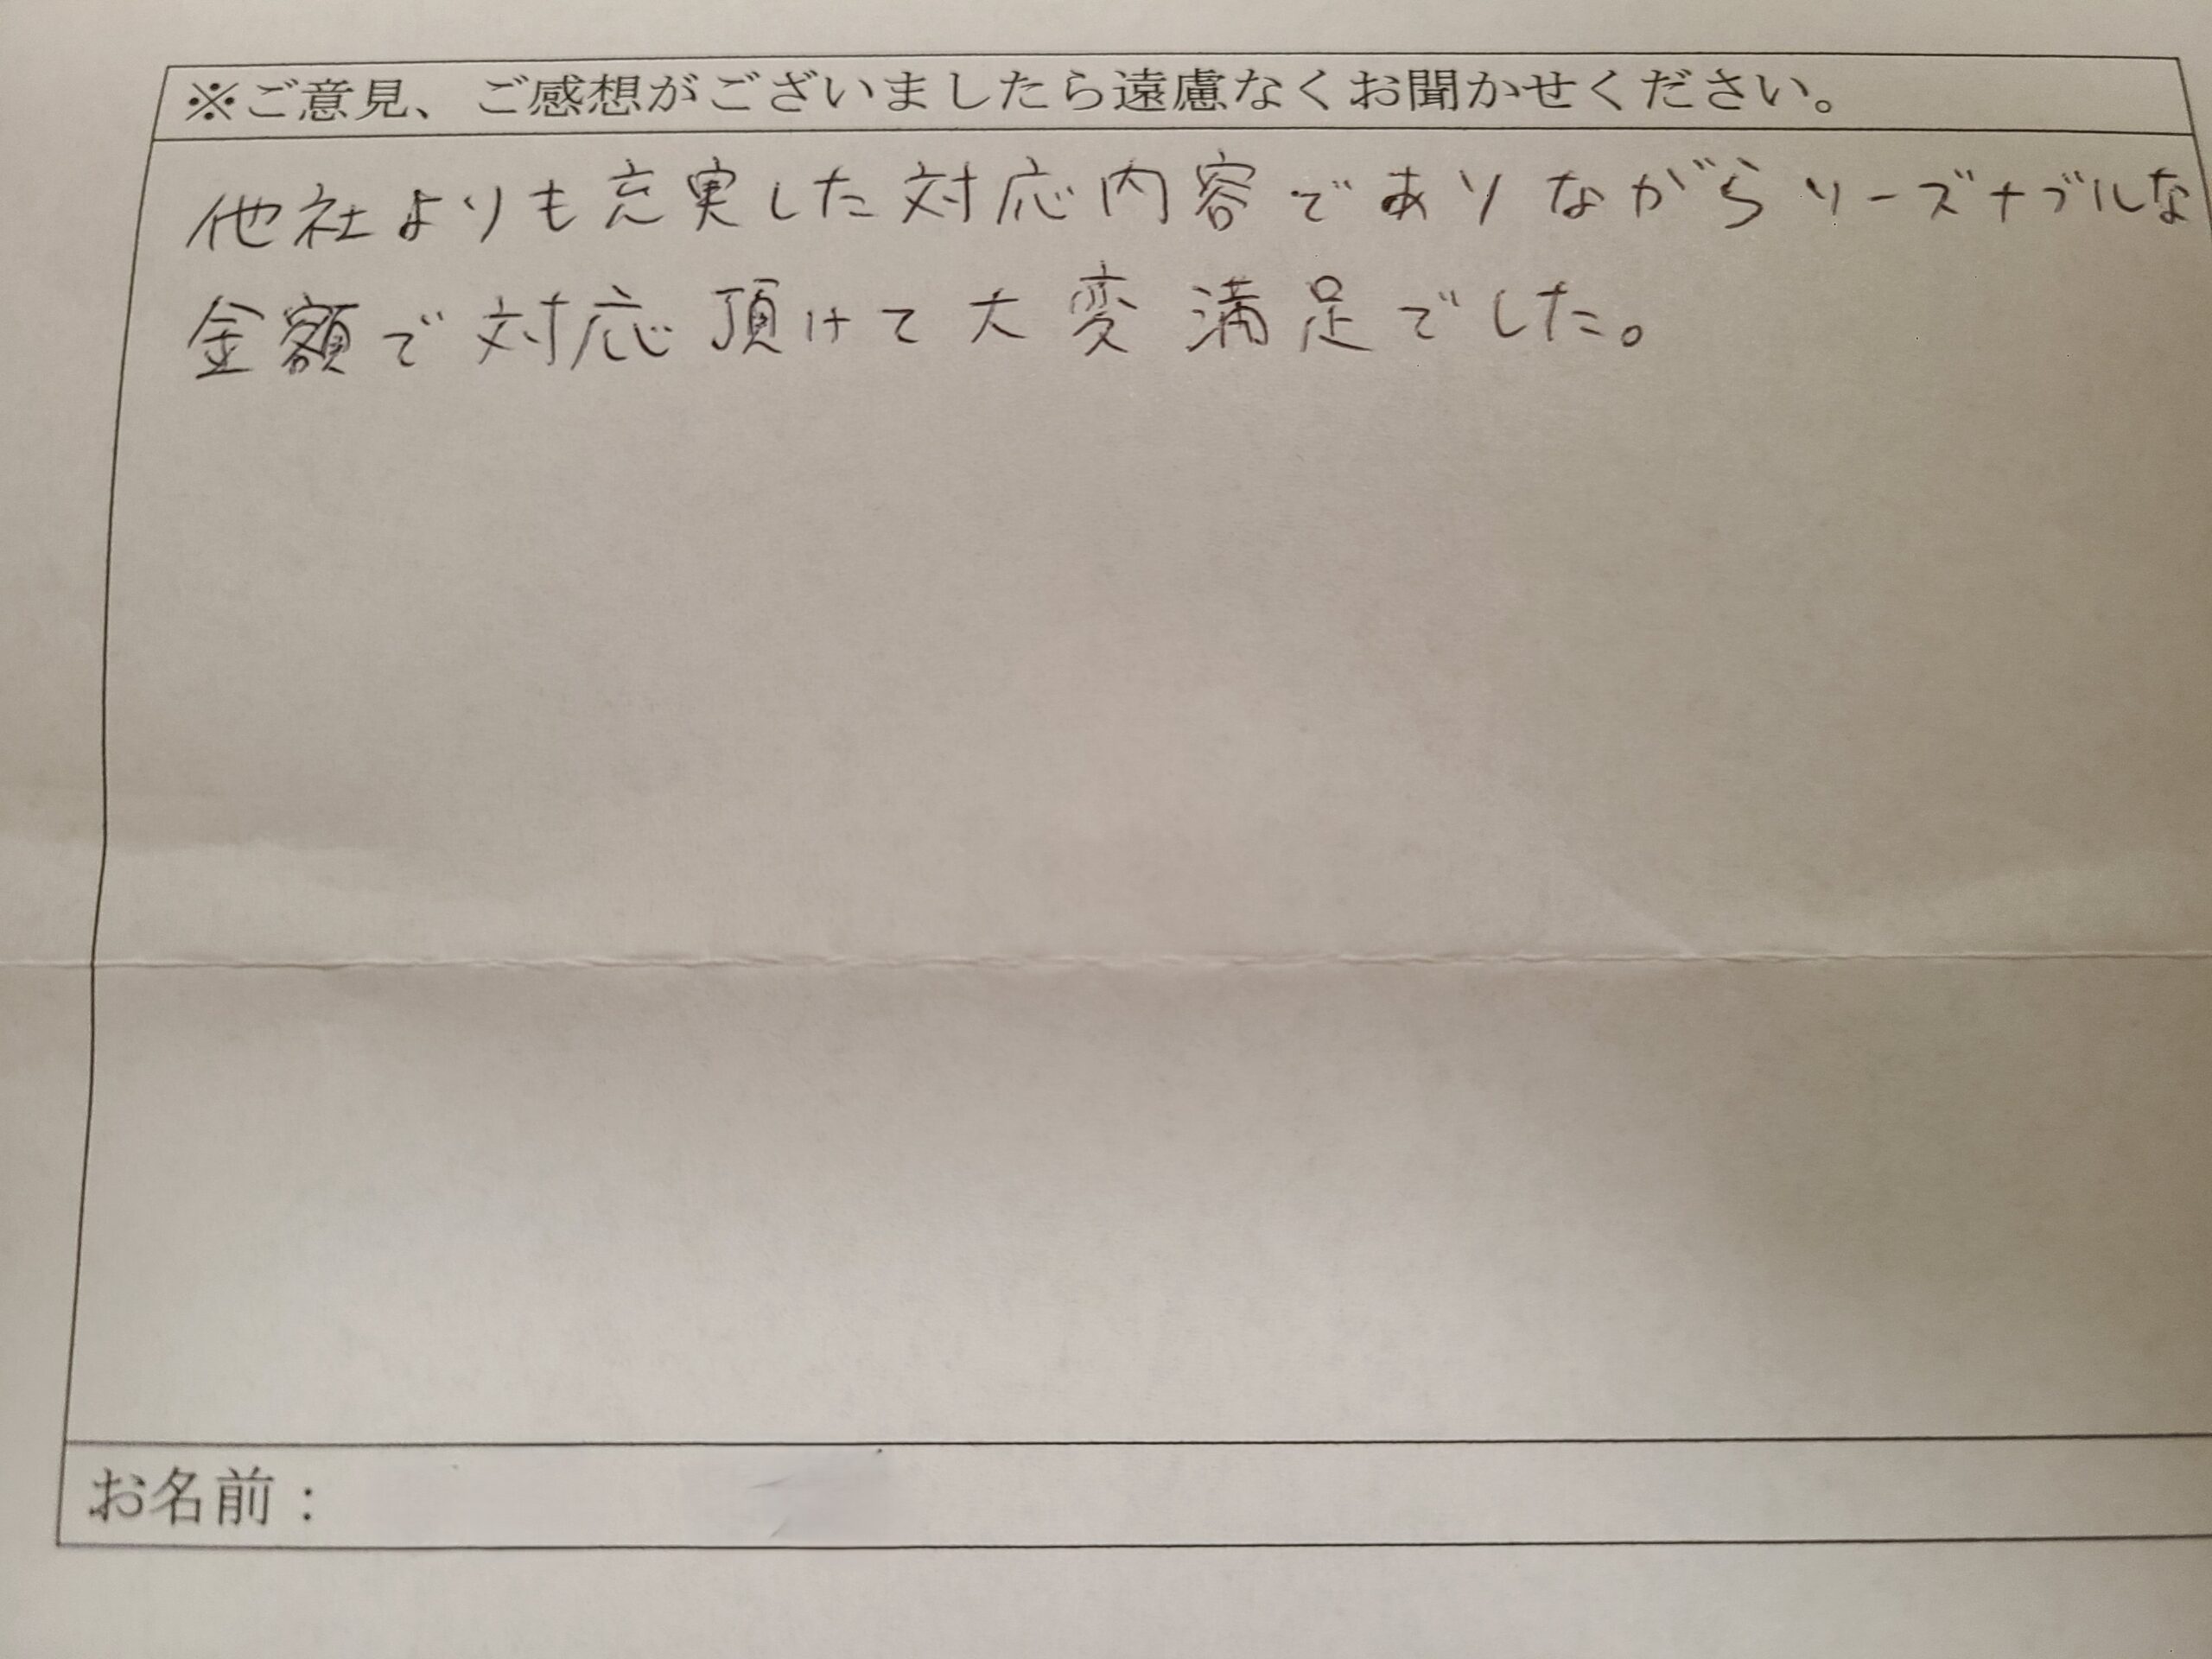 ※ご意見、ご感想がございましたら遠慮なくお聞かせください。
他社よりも充実した対応内容でありながらリーズナブルな
金額で対応頂けて大変満足でした。
お名前：